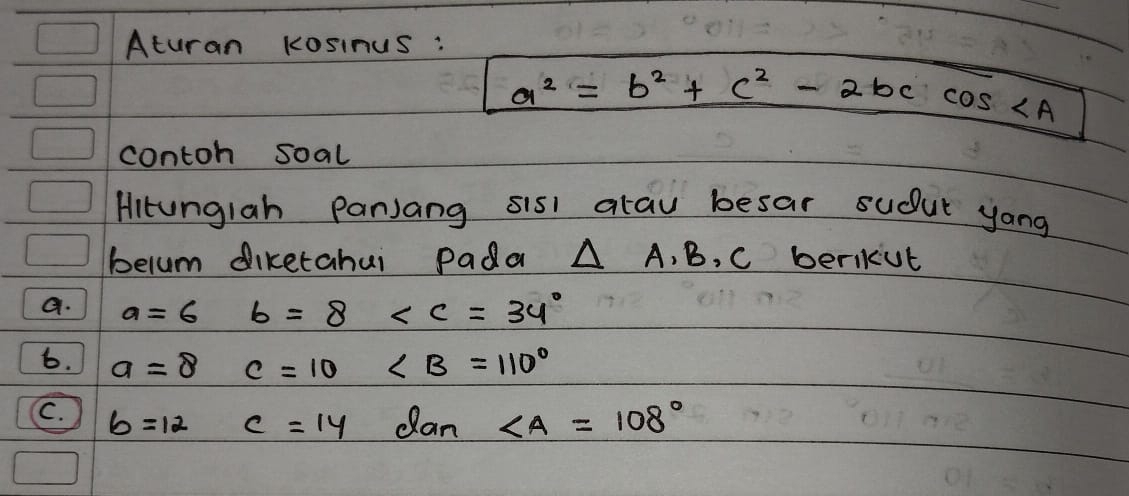 Aturan kosinus :
a² = b² + c² - 2bc cos <A
contoh soal
Hitunglah panjang sisi atau besar sudut yang
belum diketahui pada Δ A,B,C berikut
a. a = 6 b = 8 < C = 34°
b. a = 8 c = 10 < B = 110°
c. b = 12 c = 14 dan <A = 108°